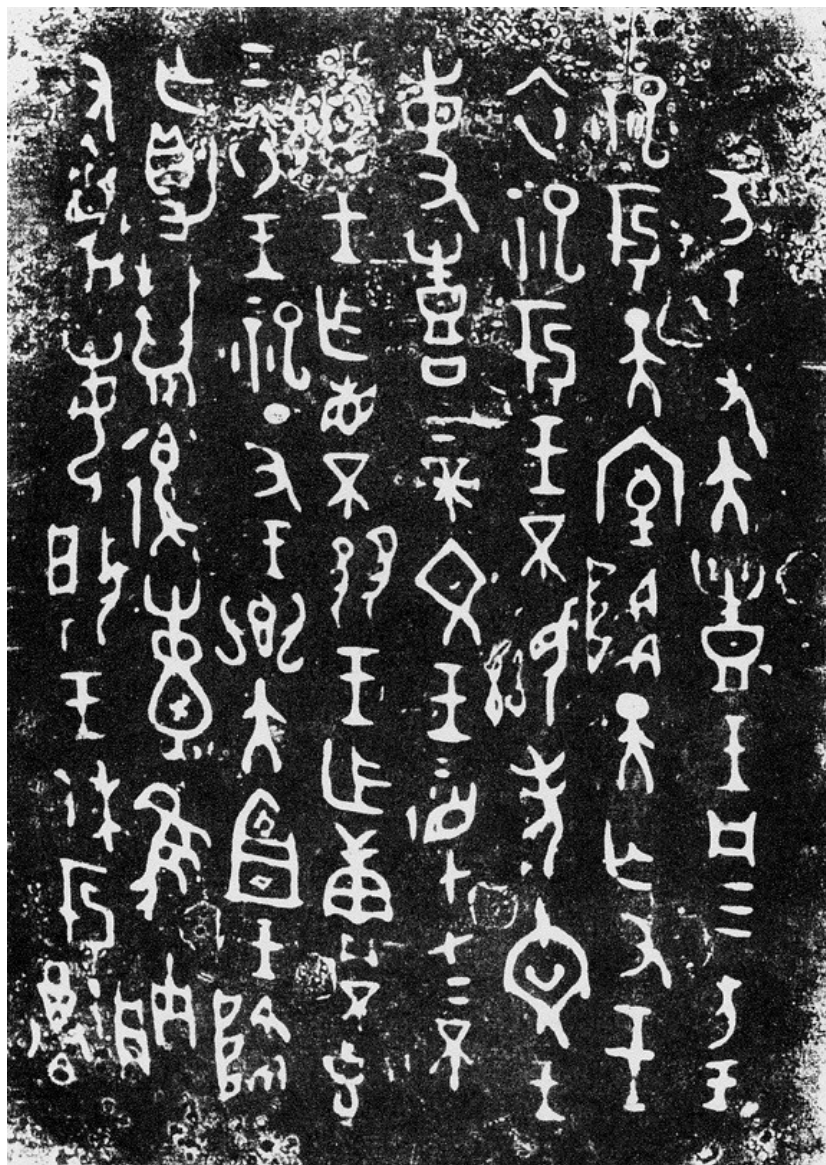 亥王又大豐王凡三方王
祀于天室降天亡又王
衣祀于王不顯考文王
事喜上帝文王監在上不
顯王乍省不王乍不克
三衣王祀丁丑王鄉大宜王降
亡爵復隹朕
又每揚王休于尊